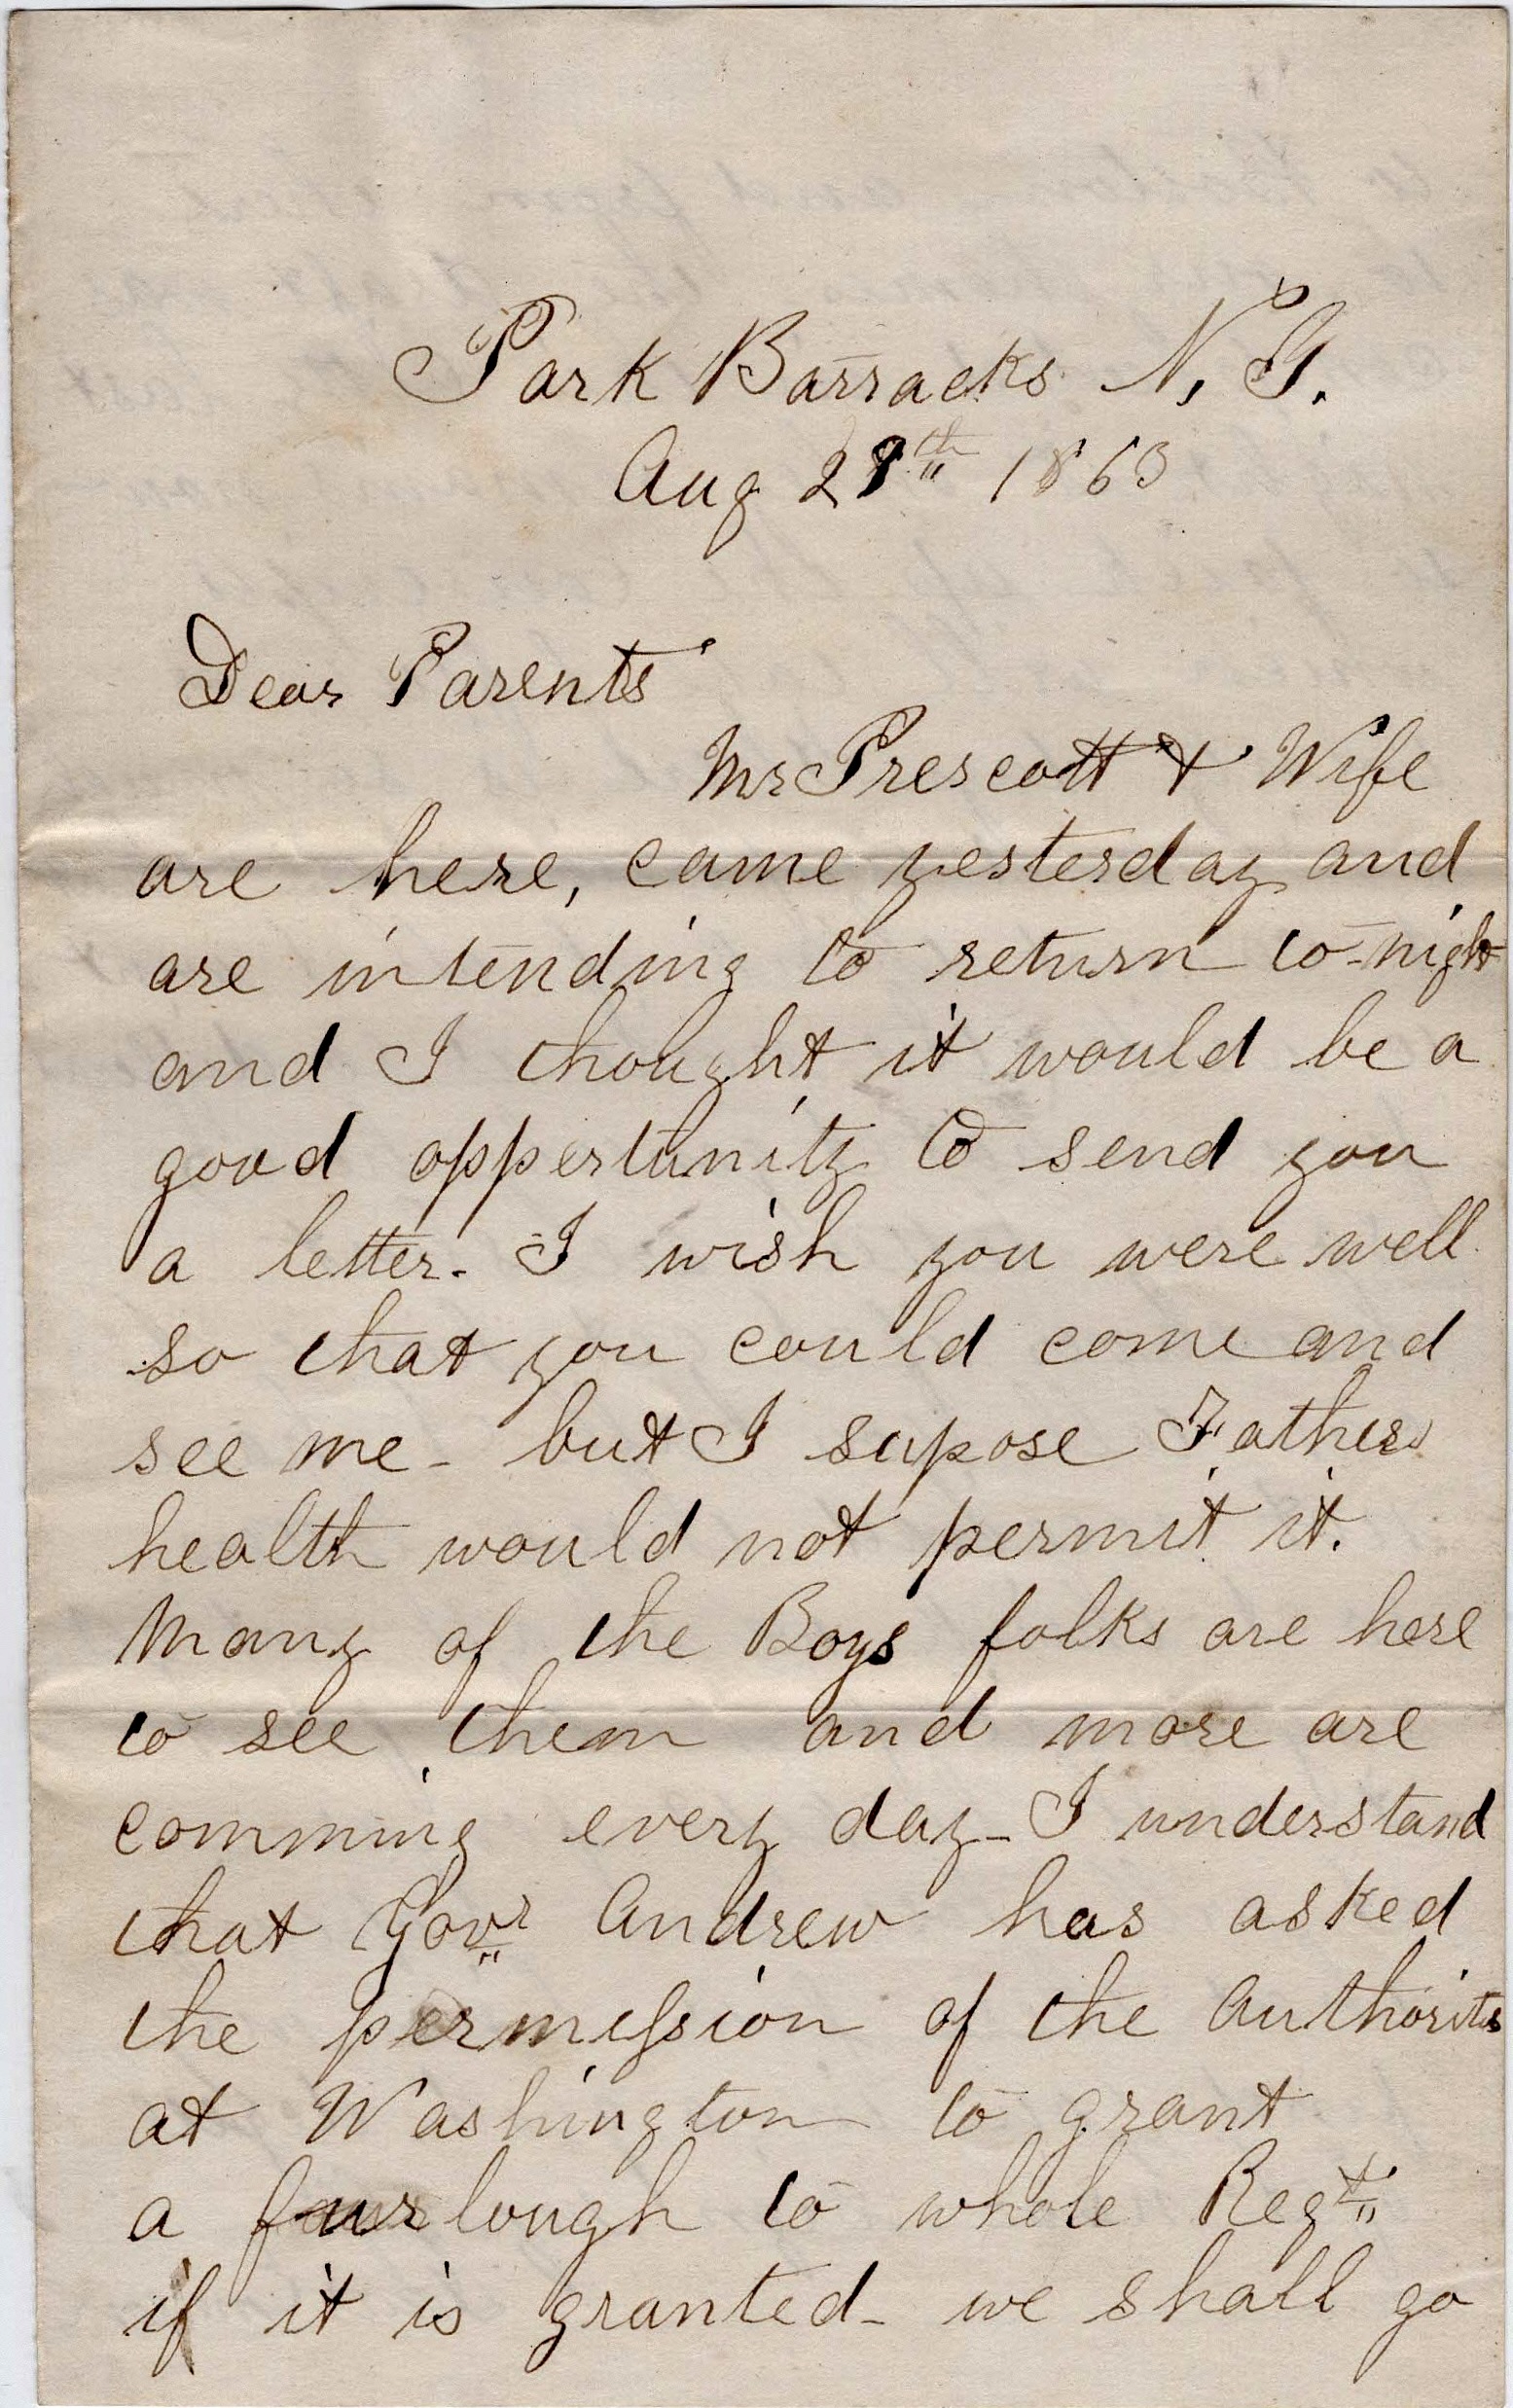 Park Barracks N, Y.
Aug 28th 1863
Dear Parents
Mr Prescott & Wife
are here, came yesterday and
are intending to return to-night
and I thought it would be a
good oppertunity to send you
a letter. I wish you were well
so that you could come and
see me - but I supose Fathers
health would not permit it.
Many of the Boys folks are here
to see them and more are
comming every day - I understand
that Govr Andrew has asked
the permission of the authorits
at Washington to grant
a furlough to whole Regt
if it is granted - we shall go